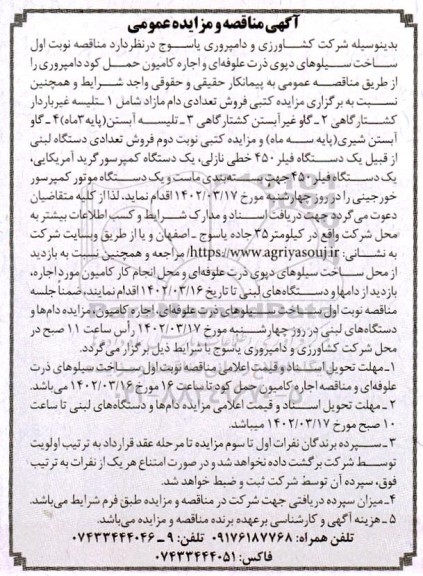 آگهی مناقصه و مزایده عمومی
بدینوسیله شرکت کشاورزی و دامپروری یاسوج درنظر دارد مناقصه نوبت اول
ساخت سیلوهای دپوی ذرت علوفه‌ای و اجاره کامیون حمل کود دامپروری را
از طریق مناقصه عمومی به پیمانکار حقیقی و حقوقی واجد شرایط و همچنین
نسبت به برگزاری مزایده کتبی فروش تعدادی دام مازاد شامل ۱ـ تلیسه غیرباردار
کشتارگاهی ۲ـ گاو غیرآبستن کشتارگاهی ۳ـ تلیسه آبستن (پایه ۳ماه) ۴ـ گاو
آبستن شیری (پایه سه ماه) و مزایده کتبی نوبت دوم فروش تعدادی دستگاه لبنی
از قبیل یک دستگاه فیلر ۴۵۰ خطی نازلی، یک دستگاه کمپرسور گرید آمریکایی،
یک دستگاه فیلر ۴۵۰ جهت بسته‌بندی ماست و یک دستگاه موتور کمپرسور
خورجینی را در روز چهارشنبه مورخ ۱۴۰۲/۰۳/۱۷ اقدام نماید، لذا از کلیه متقاضیان
دعوت می‌گردد جهت دریافت اسناد و مدارک شرایط و کسب اطلاعات بیشتر به
محل شرکت واقع در کیلومتر ۳۵ جاده یاسوج ـ اصفهان و یا از طریق وبسایت شرکت
به نشانی: https://www.agriyasouj.ir/ مراجعه و همچنین نسبت به بازدید
از محل ساخت سیلوهای دپوی ذرت علوفه‌ای و محل انجام کار کامیون مورد اجاره،
بازدید از دامها و دستگاه‌های لبنی تا تاریخ ۱۴۰۲/۰۳/۱۶ اقدام نمایند، ضمناً جلسه
مناقصه نوبت اول ساخت سیلوهای ذرت علوفه‌ای، اجاره کامیون، مزایده دام‌ها و
دستگاه‌های لبنی در روز چهارشنبه مورخ ۱۴۰۲/۰۳/۱۷ رأس ساعت ۱۱ صبح در
محل شرکت کشاورزی و دامپروری یاسوج با شرایط ذیل برگزار می‌گردد.
۱ـ مهلت تحویل اسناد و قیمت اعلامی مناقصه نوبت اول ساخت سیلوهای ذرت
علوفه‌ای و مناقصه اجاره کامیون حمل کود تا ساعت ۱۶ مورخ ۱۴۰۲/۰۳/۱۶ می‌باشد.
۲ـ مهلت تحویل اسناد و قیمت اعلامی مزایده دام‌ها و دستگاه‌های لبنی تا ساعت
۱۰ صبح مورخ ۱۴۰۲/۰۳/۱۷ میباشد.
۳ـ سپرده برندگان نفرات اول تا سوم مزایده تا مرحله عقد قرارداد به ترتیب اولویت
توسط شرکت برگشت داده نخواهد شد و در صورت امتناع هر یک از نفرات به ترتیب
فوق، سپرده آن توسط شرکت ثبت و ضبط خواهد شد.
۴ـ میزان سپرده دریافتی جهت شرکت در مناقصه و مزایده طبق فرم شرایط می‌باشد.
۵ـ هزینه آگهی و کارشناسی برعهده برنده مناقصه و مزایده می‌باشد.
تلفن همراه: ۰۹۱۷۶۱۸۷۷۶۸ تلفن: ۹ـ۰۷۴۳۳۴۴۴۰۴۶
فاکس: ۰۷۴۳۳۴۴۴۰۵۱